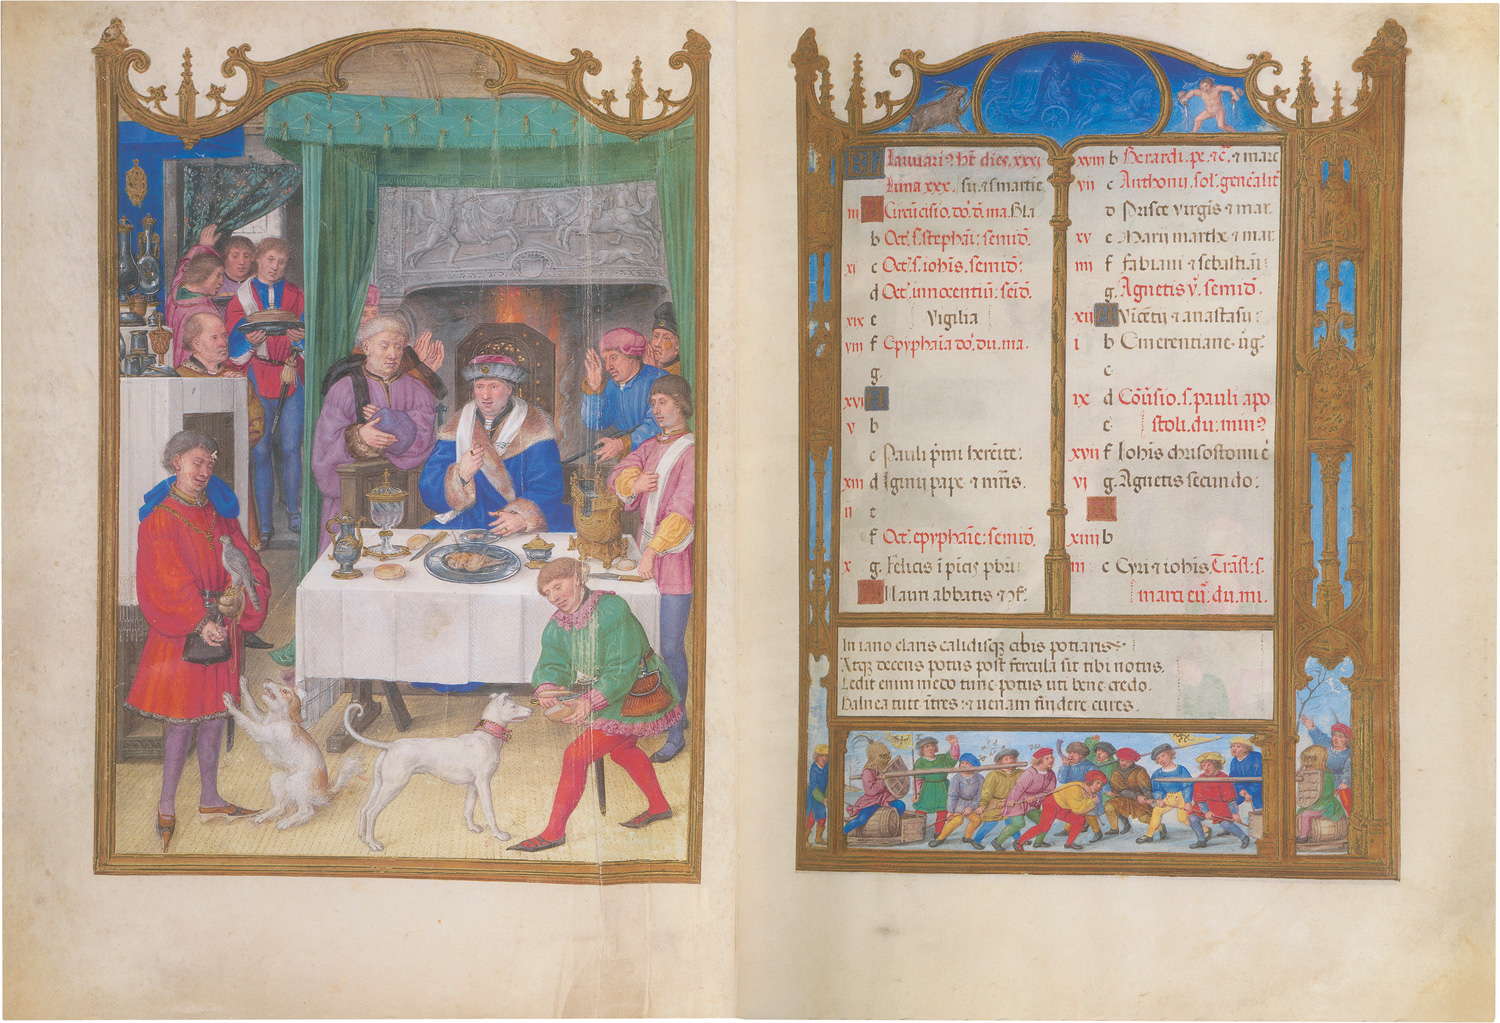 KL Ianuari⁹ hꝫ dies. xxxi
Luna xxx.
iii A Circũcisio. dõ. d. ma. Bla.
b Oct̃. s. stephãi: semid̃.
xi c Oct̃. s. iohis. semid̃:
d Oct̃. innocentiũ: seid̃.
xix e Vigilia
viii f Epyphaĩa dõ. du. ma.
g.
xvi A
v b
c Pauli p̃mi heremite:
xiii d Iginij pape ⁊ m̃ris.
ii e
f Oct̃. epyphaie: semid̃.
x g. Felicis ĩ pĩcis pb̃ri:
A Mauri abbatis ⁊ ꝯf.
xviii b Berardi. pe. ⁊ c̃. ⁊ mart
vii c Anthonij. sol. gen̄calit̃
d Prisce virgis ⁊ mar.
xv e Marij marthe ⁊ mar
iiii f fabiani ⁊ sebastiãi:
g. Agnetis v̄. semid̃.
xii A Vĩcẽtij ⁊ anastasij:
i b Emerentiane. ṽg.
c
ix d Cõṽsio. s. pauli apo
e stoli. du. min?
xvii f Iohis chrisostomi ẽ
vi g. Agnetis secundo:
A
xiiii b
iii c Cyri ⁊ iohis. Trãst: s.
marci eũ. du. mi.
In iano claris calidisq̃ cibis potiaris
Atq̃ decens potus post fercula sit tibi notus.
Ledit enim medo tunc potus uti bene credo.
Balnea tute ĩtres: ⁊ uenam findere cures.